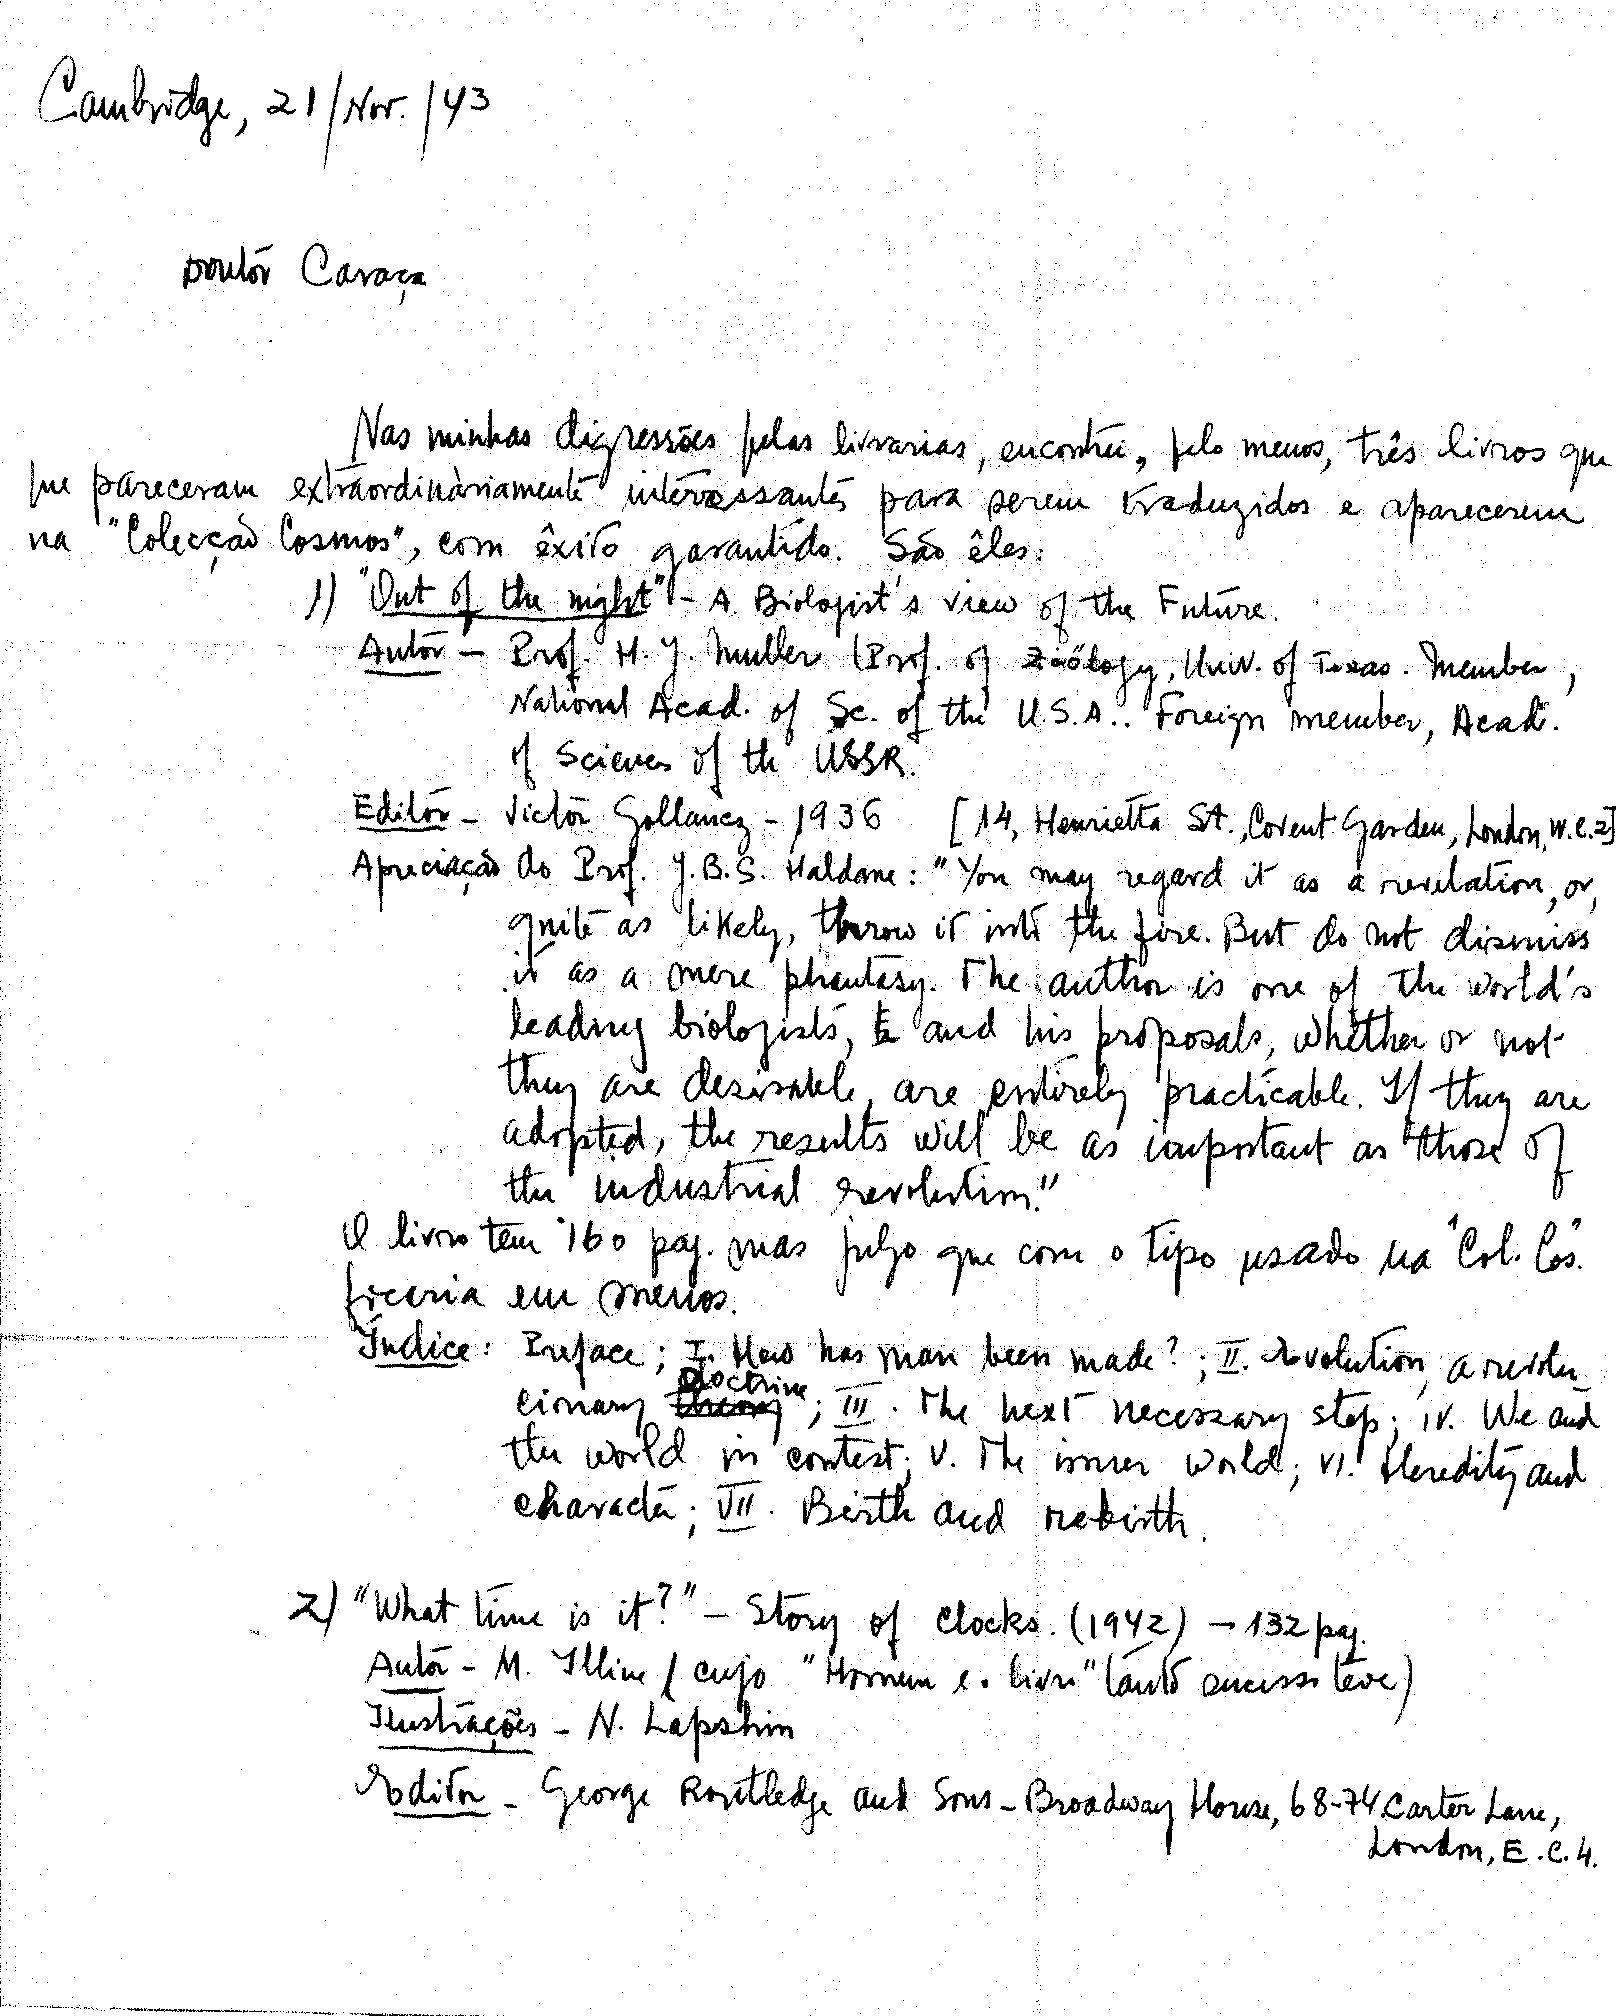 Cambridge, 21/Nov./43
Doutor Caraça
Nas minhas digressões pelas livrarias, encontrei, pelo menos, três livros que
me pareceram extraordinàriamente interessantes para serem traduzidos e aparecerem
na "Colecção Cosmos", com êxito garantido. São êles:
1) "Out of the night" - A Biologist's view of the Future.
Autor - Prof. H. J. Muller (Prof. of Zoölogy, Univ. of Texas. Member,
National Acad. of Sc. of the U.S.A.. Foreign member, Acad.
of Sciences of the USSR.
Editor - Victor Gollancz - 1936 [14, Henrietta St., Covent Garden, London, W.C.2]
Apreciação do Prof. J.B.S. Haldane: "You may regard it as a revelation, or,
quite as likely, throw it into the fire. But do not dismiss
it as a mere phantasy. The author is one of the world's
leading biologists, and his proposals, whether or not
they are desirable, are entirely practicable. If they are
adopted, the results will be as important as those of
the industrial revolution."
O livro tem 160 pag. mas julgo que com o tipo usado na "Col. Cos."
ficaria em menos.
Índice: Preface; I. How has man been made?; II. Revolution, a revolu_
cionary theory doctrine; III. The next necessary step; IV. We and
the world in contest; V. The inner world; VI. Heredity and
character; VII. Birth and rebirth.
2) "What time is it?" - Story of clocks. (1942) - 132 pag.
Autor - M. Illine (cujo "Homem e o livro" tanto sucesso teve)
Ilustrações - N. Lapshin
Editor - George Routledge and Sons - Broadway House, 68-74 Carter Lane,
London, E.C.4.